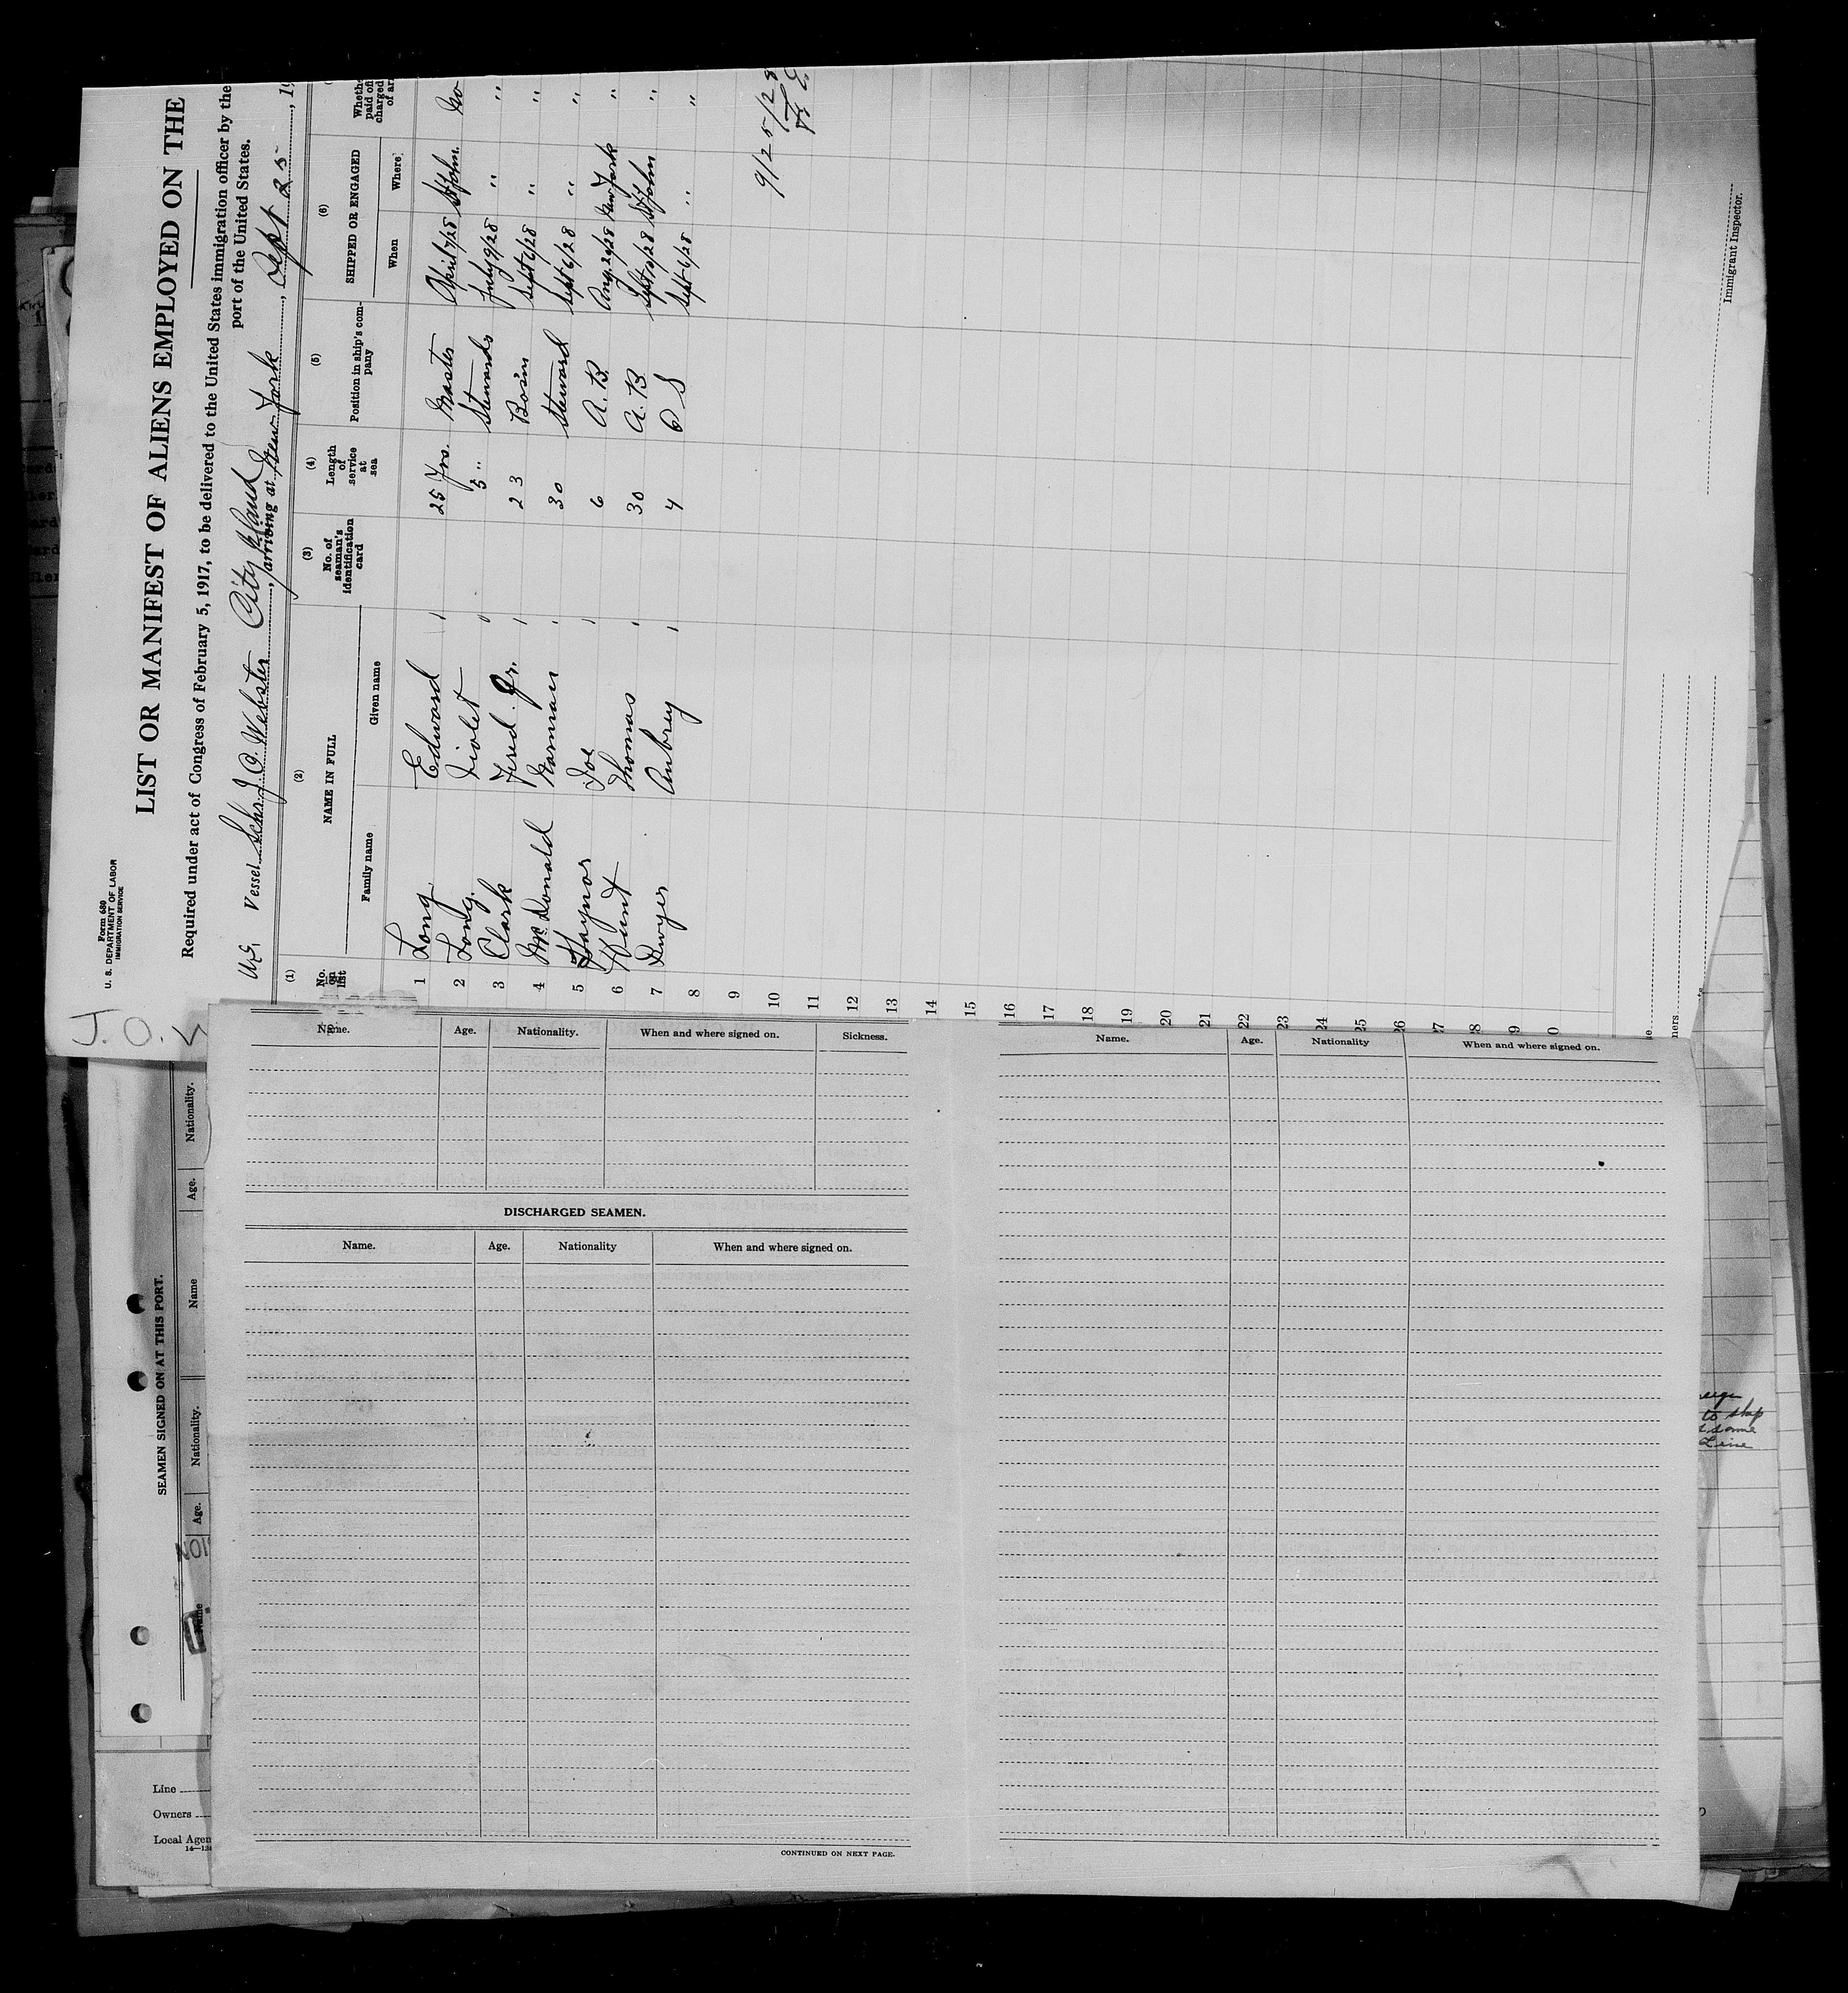 Form 680
U. S. DEPARTMENT OF LABOR
IMMIGRATION SERVICE
LIST OR MANIFEST OF ALIENS EMPLOYED ON THE
Required under act of Congress of February 5, 1917, to be delivered to the United States immigration officer by the
port of the United States.
Vessel Schr. J. O. Webster City Island, arriving at New York, Sept 25, 19
(1) (2) (3) (4) (5) (6)
No. on list NAME IN FULL No. of seaman's identification card Length of service at sea Position in ship's company SHIPPED OR ENGAGED Wheth paid off charged of ar
Family name Given name When Where
1 Long Edward 25 Yrs. Master April 7/28 St John. No
2 Long Violet 5 " Stewardess July 9/28 " "
3 Clark Fred. Jr. 23 Bo's'n Sept 6/28 " "
4 McDonald Norman 30 Steward Sept 6/28 " "
5 Haynor Joe 6 A. B. Aug. 29/28 New York "
6 Hunt Thomas 30 A. B. Sept 6/28 St John "
7 Dwyer Aubrey 4 O S Sept 6/28 " "
8
9
10
11
12
13
14
15
16
17
18
19
20
21
22
23
24
25
26
27
28
9
0
9/25/28
Immigrant Inspector.
J. O. W
Name. Age. Nationality. When and where signed on. Sickness.
DISCHARGED SEAMEN.
Name. Age. Nationality When and where signed on.
CONTINUED ON NEXT PAGE.
Name. Age. Nationality When and where signed on.
SEAMEN SIGNED ON AT THIS PORT.
Name Age. Nationality. Name Age. Nationality.
Line
Owners
Local Agen
to ship
some
Line